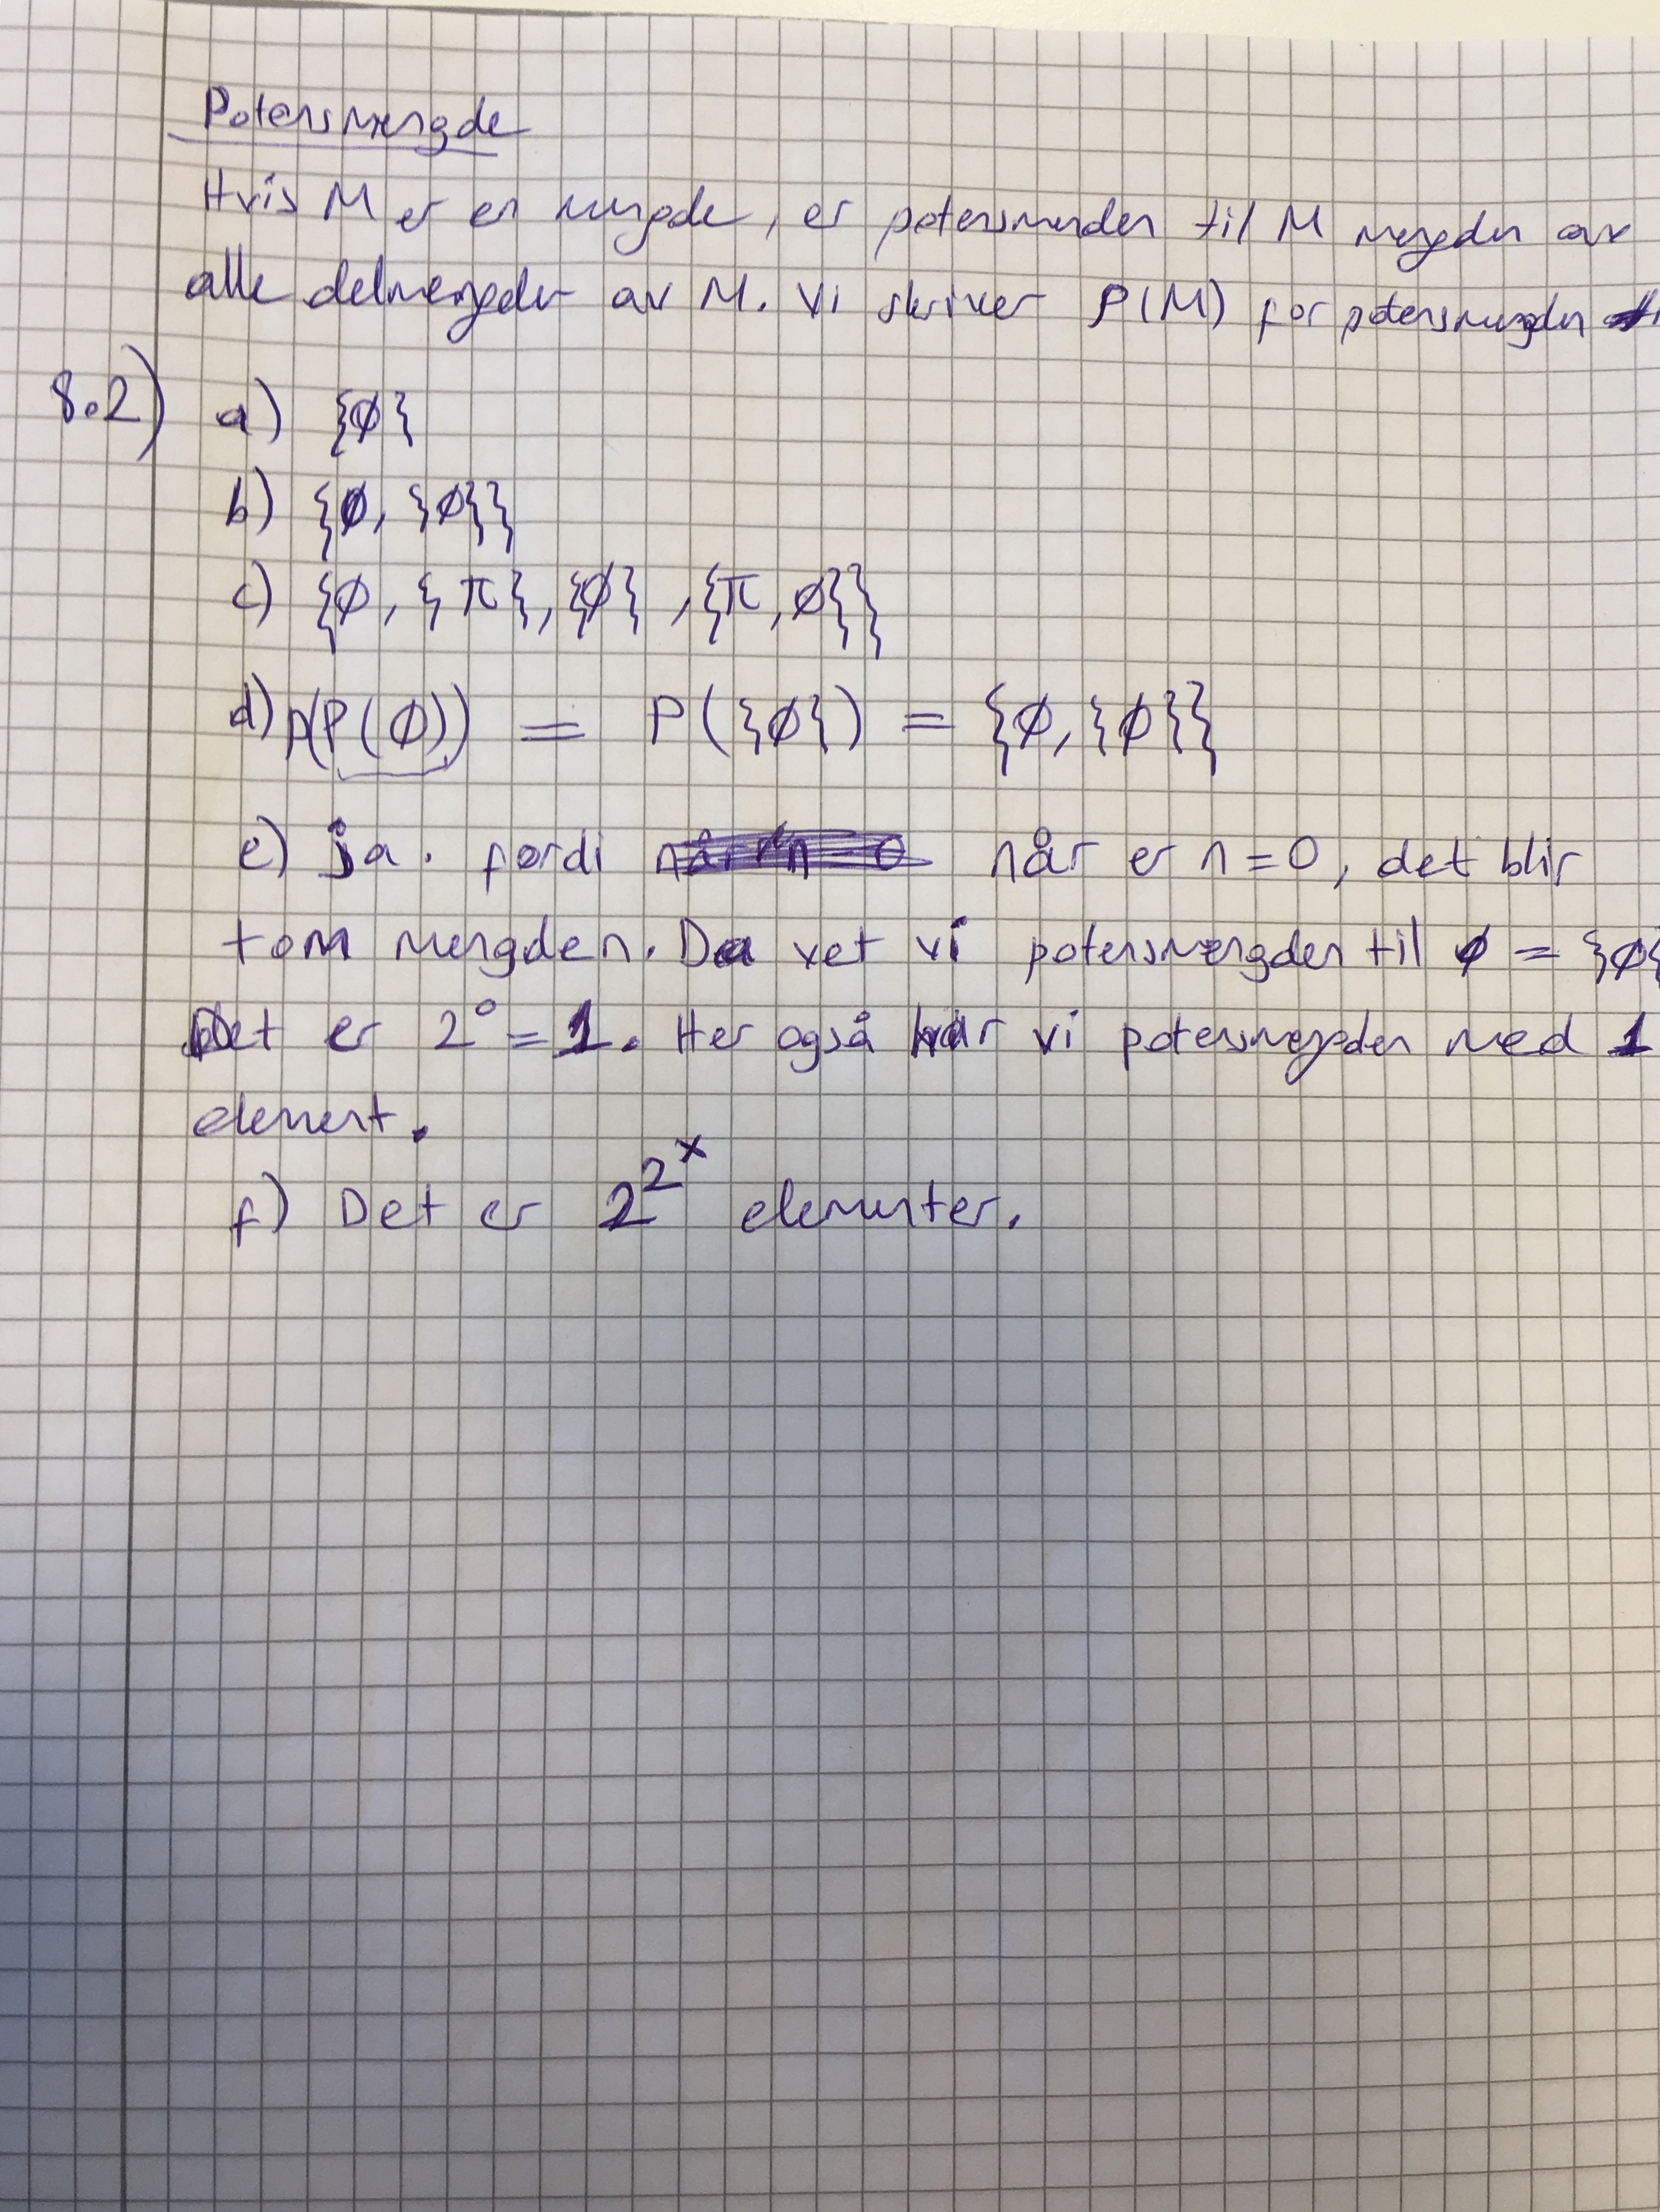 Potensmengde
Hvis M er en mengde, er potensmenden til M mengden av
alle delmengder av M. Vi skriver P(M) for potensmengden
8.2) a) {∅}
b) {∅, {∅}}
c) {∅, {π}, {∅}, {π, ∅}}
d) P(P(∅)) = P({∅}) = {∅, {∅}}
e) ja. fordi når er n = 0, det blir
tom mengden. Da vet vi potensmengden til ∅ = {∅}
Det er 2⁰ = 1. Her også har vi potensmengden med 1
element.
f) Det er 2^2^x elementer.